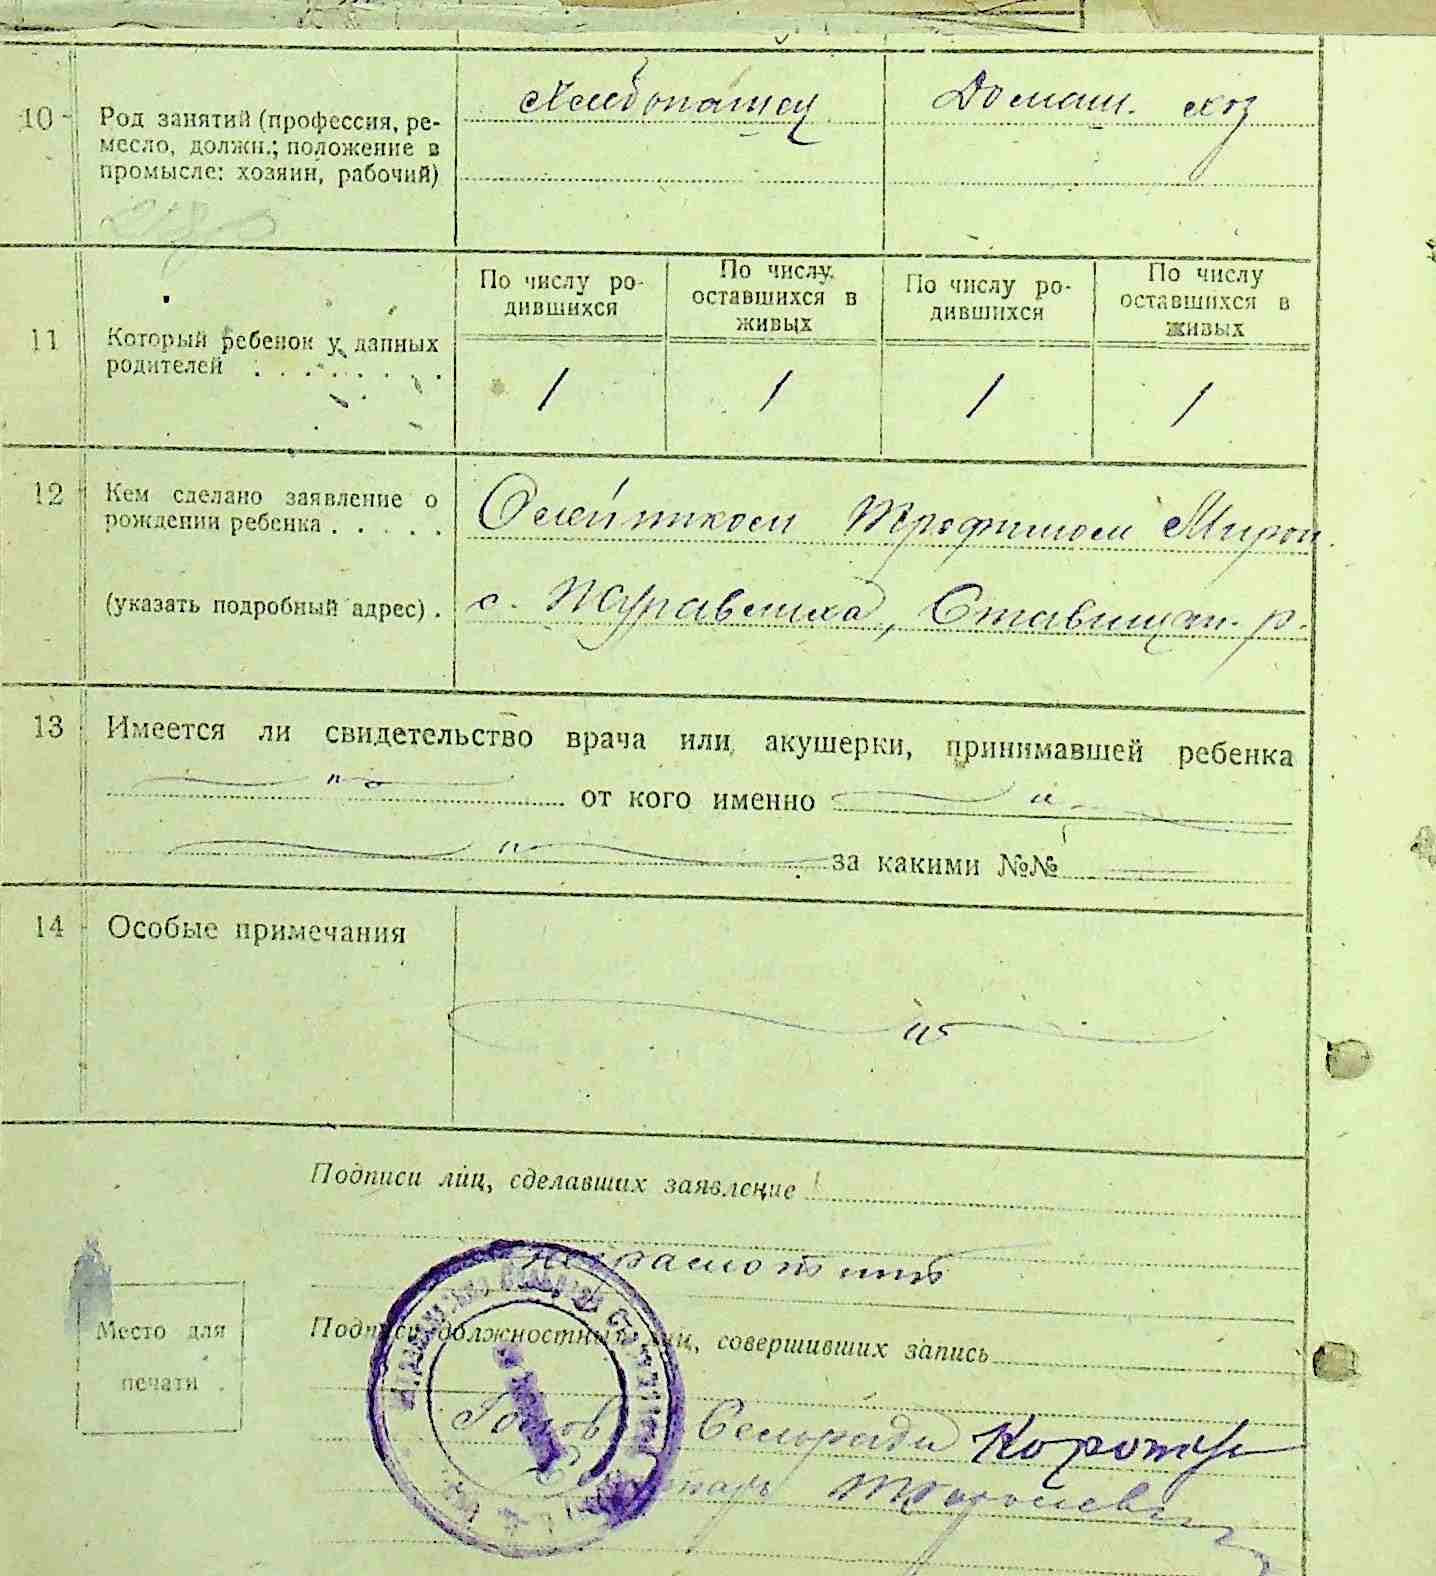 10 Род занятий (профессия, ре-
месло, должн.; положение в
промысле: хозяин, рабочий)
Хлебопашец
Домаш. хоз
11 Который ребенок у данных
родителей . . . . . . .
По числу ро-
дившихся
По числу
оставшихся в
живых
По числу ро-
дившихся
По числу
оставшихся в
живых
1 1 1 1
12 Кем сделано заявление о
рождении ребенка . . . . .
Олейником Трофимом Мирон.
(указать подробный адрес) . с. Журавлиха, Ставищан. р.
13 Имеется ли свидетельство врача или акушерки, принимавшей ребенка
от кого именно
за какими №№
14 Особые примечания
Подписи лиц, сделавших заявление
неграмотний
Подписи должностных лиц, совершивших запись
Место для
печати
Голова Сельради
Секретарь